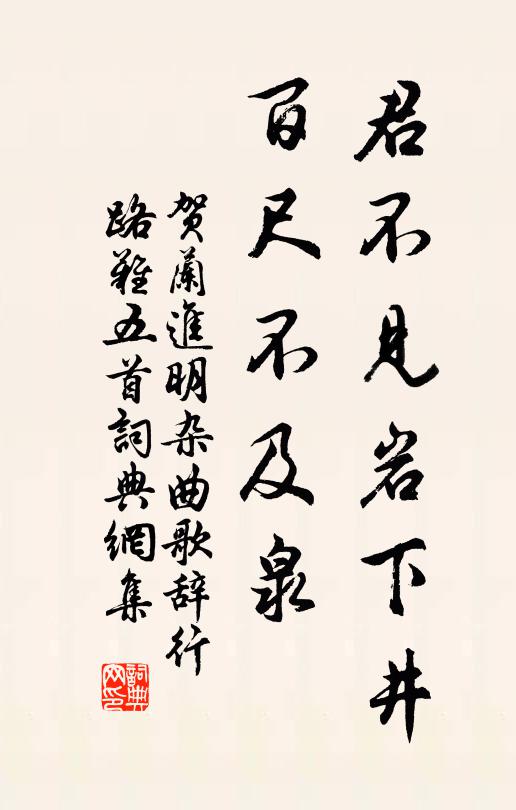 君不見岩下井
百尺不及泉
贺蘭進明杂曲歌辞行
路難五首詞典網集
詞典
网印